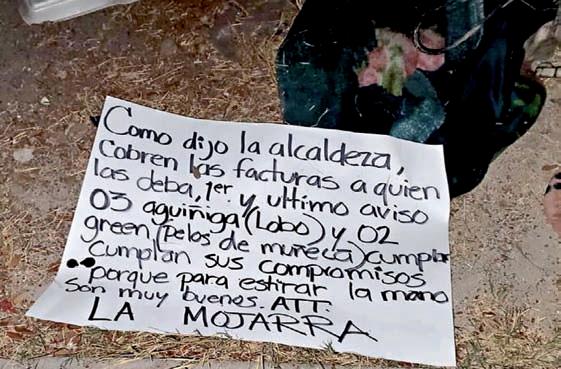 Como dijo la alcaldeza,
cobren las facturas a quien
las deba, 1er. y ultimo aviso
03 aguiñiga (Lobo) y 02
green (pelos de muñeca) cumplan
cumplan sus compromisos
porque para estirar la mano
son muy buenos. ATT.
LA MOJARRA